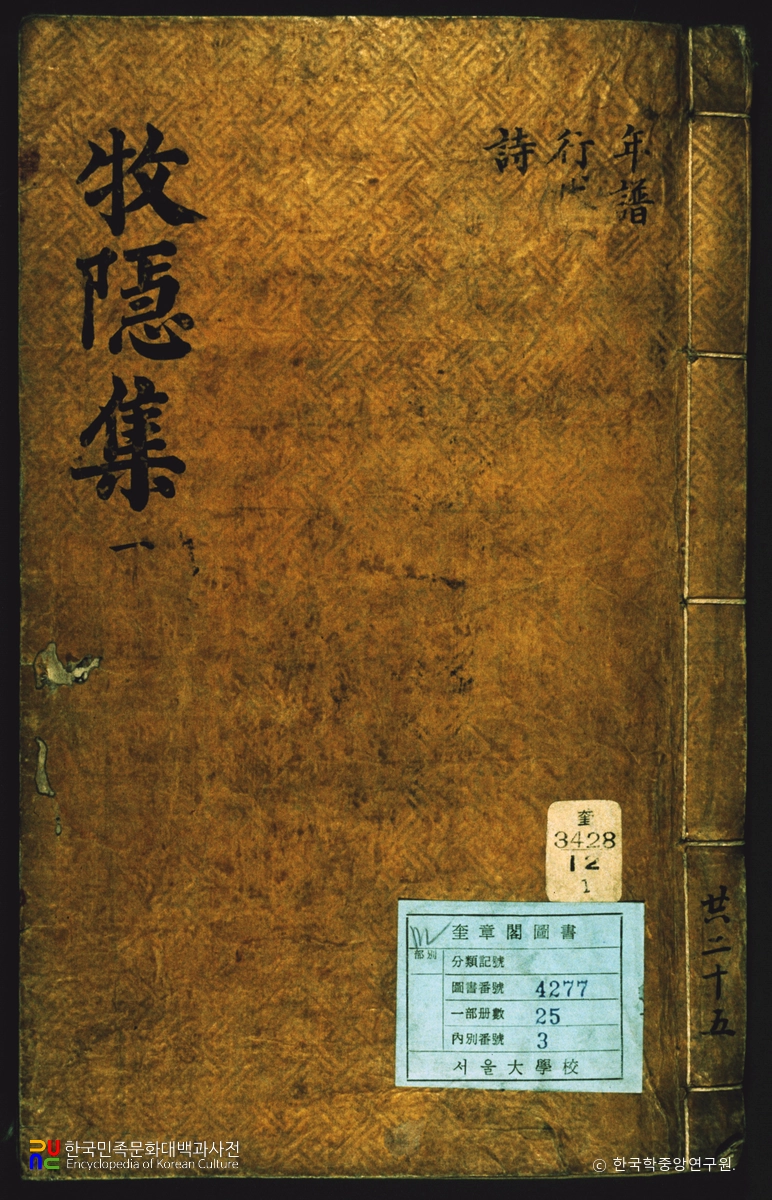 牧隱集
一
年譜
行狀
詩
共二十五
奎
3428
12
1
奎章閣圖書
部別
分類記號
圖書番號 4277
一部册數 25
內別番號 3
서울大學校
한국민족문화대백과사전
Encyclopedia of Korean Culture
© 한국학중앙연구원.